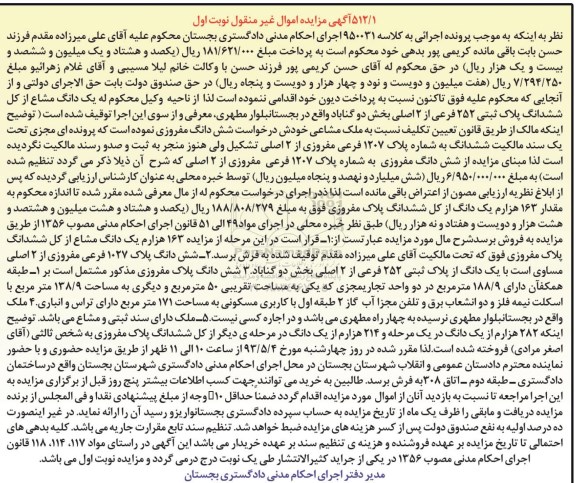 ۵۱۲/۱آگهی مزایده اموال غیر منقول نوبت اول
نظر به اینکه به موجب پرونده اجرائی به کلاسه ۹۵۰۰۳۱اجرای احکام مدنی دادگستری بجستان محکوم علیه آقای علی میرزاده مقدم فرزند
حسن بابت باقی مانده کریمی پور بدهی خود محکوم است به پرداخت مبلغ ۱۸۱/۶۲۱/۰۰۰ ریال (یکصد و هشتاد و یک میلیون و ششصد و
بیست و یک هزار ریال) در حق محکوم له آقای حسن کریمی پور فرزند حسن با وکالت خانم لیلا مسیبی و آقای غلام زهرائیو مبلغ
۷/۲۹۴/۲۵۰ ریال (هفت میلیون و دویست و نود و چهار هزار و دویست و پنجاه ریال) در حق صندوق دولت بابت حق الاجرای دولتی و از
آنجایی که محکوم علیه فوق تاکنون نسبت به پرداخت دیون خود اقدامی ننموده است لذا از ناحیه وکیل محکوم له یک دانگ مشاع از کل
ششدانگ پلاک ثبتی ۲۵۲ فرعی از ۲ اصلی بخش دو گناباد واقع در بجستانبلوار مطهری، معرفی و از سوی این اجرا توقیف شده است ( توضیح
اینکه مالک از طریق قانون تعیین تکلیف نسبت به ملک مشاعی خودش درخواست شش دانگ مفروزی نموده است که پرونده ای مجزی تحت
یک سند مالکیت ششدانگ به شماره پلاک ۱۲۰۷ فرعی مفروزی از ۲ اصلی تشکیل ولی هنوز منجر به ثبت و صدور رسند مالکیت نگردیده
است لذا مبنای مزایده از شش دانگ مفروزی به شماره پلاک ۱۲۰۷ فرعی مفروزی از ۲ اصلی که شرح آن ذیلا ذکر می گردد تنظیم شده
است) به مبلغ ۶/۹۵۰/۰۰۰/۰۰۰ ریال (شش میلیارد و نهصد و پنجاه میلیون ریال) توسط خبره محلی به عنوان کارشناس ارزیابی گردیده که پس
از ابلاغ نظریه ارزیابی مصون از اعتراض باقی مانده است لذا در اجرای درخواست محکوم له از مال معرفی شده مقرر شد تا اندازه محکوم به
مقدار ۱۶۳ هزارم یک دانگ از کل ششدانگ پلاک مفروزی فوق به مبلغ ۱۸۸/۸۰۸/۲۷۹ ریال (یکصد و هشتاد و هشت میلیون و هشتصد و
هشت هزار و دویست و هفتاد و نه هزار ریال) طبق نظر خبره محلی در اجرای مواد۴۹ الی ۵۱ قانون اجرای احکام مدنی مصوب ۱۳۵۶ از طریق
مزایده به فروش برسدشرح مال مورد مزایده عبارتست از:۱-قرار است در این مرحله از مزایده ۱۶۳ هزارم یک دانگ مشاع از کل ششدانگ
پلاک مفروزی فوق که تحت مالکیت آقای علی میرزاده مقدم توقیف شده به فرش برسد.۲-شش دانگ پلاک ۱۰۲۷ فرعی مفروزی از ۲ اصلی
مساوی است با یک دانگ از پلاک ثبتی ۲۵۲ فرعی از ۲ اصلی بخش دو گناباد.۳ شش دانگ پلاک مفروزی مذکور مشتمل است بر ۱-طبقه
همکفآن دارای ۱۸۸/۹ مترمربع در دو واحد تجاریمجزی که یکی به مساحت تقریبی ۵۰ مترمربع و دیگری به مساحت ۱۳۸/۹ متر مربع با
اسکلت نیمه فلز و دو انشعاب برق و تلفن مجزا آب گاز ۲ طبقه اول با کاربری مسکونی به مساحت ۱۷۱ متر مربع دارای تراس و انباری.۴ ملک
واقع در بجستانبلوار مطهری نرسیده به چهار راه مطهری می باشد و در اجاره کسی نیست.۵-ملک دارای سند ثبتی و مشاع می باشد. توضیح
اینکه ۲۸۲ هزارم از یک دانگ در یک مرحله و ۲۱۴ هزارم از یک دانگ در مرحله ی دیگر از کل ششدانگ پلاک مفروزی به شخص ثالثی (آقای
اصغر مرادی) فروخته شده است.لذا مقرر شده در روز چهارشنبه مورخ ۹۳/۵/۴ از ساعت ۱۰ الی ۱۱ ظهر از طریق مزایده حضوری و با حضور
نماینده محترم دادستان عمومی و انقلاب شهرستان بجستان در محل اجرای احکام مدنی دادگستری شهرستان بجستان واقع درساختمان
دادگستری –طبقه دوم –اتاق ۳۰۸ به فرش برسد. طالبین به خرید می توانند جهت کسب اطلاعات بیشتر پنج روز قبل از برگزاری مزایده به
این اجرا مراجعه تا نسبت به بازدید آنان از اموال مورد مزایده اقدام گردد ضمنا حداقل ۱۰٪ وجه از مبلغ پیشنهادی نقدا و فی المجلس از برنده
مزایده دریافت و مابقی را ظرف یک ماه از تاریخ مزایده به حساب سپرده دادگستری بجستانواریزو رسید آن را ارائه نماید. در غیر اینصورت
ده درصد اولیه به نفع صندوق دولت پس از کسر هزینه های مزایده ضبط خواهد شد. تنظیم سند تابع مقرارت جاریه می باشد. کلیه بدهی های
احتمالی تا تاریخ مزایده بر عهده فروشنده و هزینه ی تنظیم سند بر عهده خریدار می باشد این آگهی در راستای مواد ۱۱۷، ۱۱۴، ۱۱۸ قانون
اجرای احکام مدنی مصوب ۱۳۵۶ در یکی از جراید کثیرالانتشار طی یک نوبت درج درمی گردد و مزایده نوبت اول می باشد.
مدیر دفتر اجرای احکام مدنی دادگستری بجستان